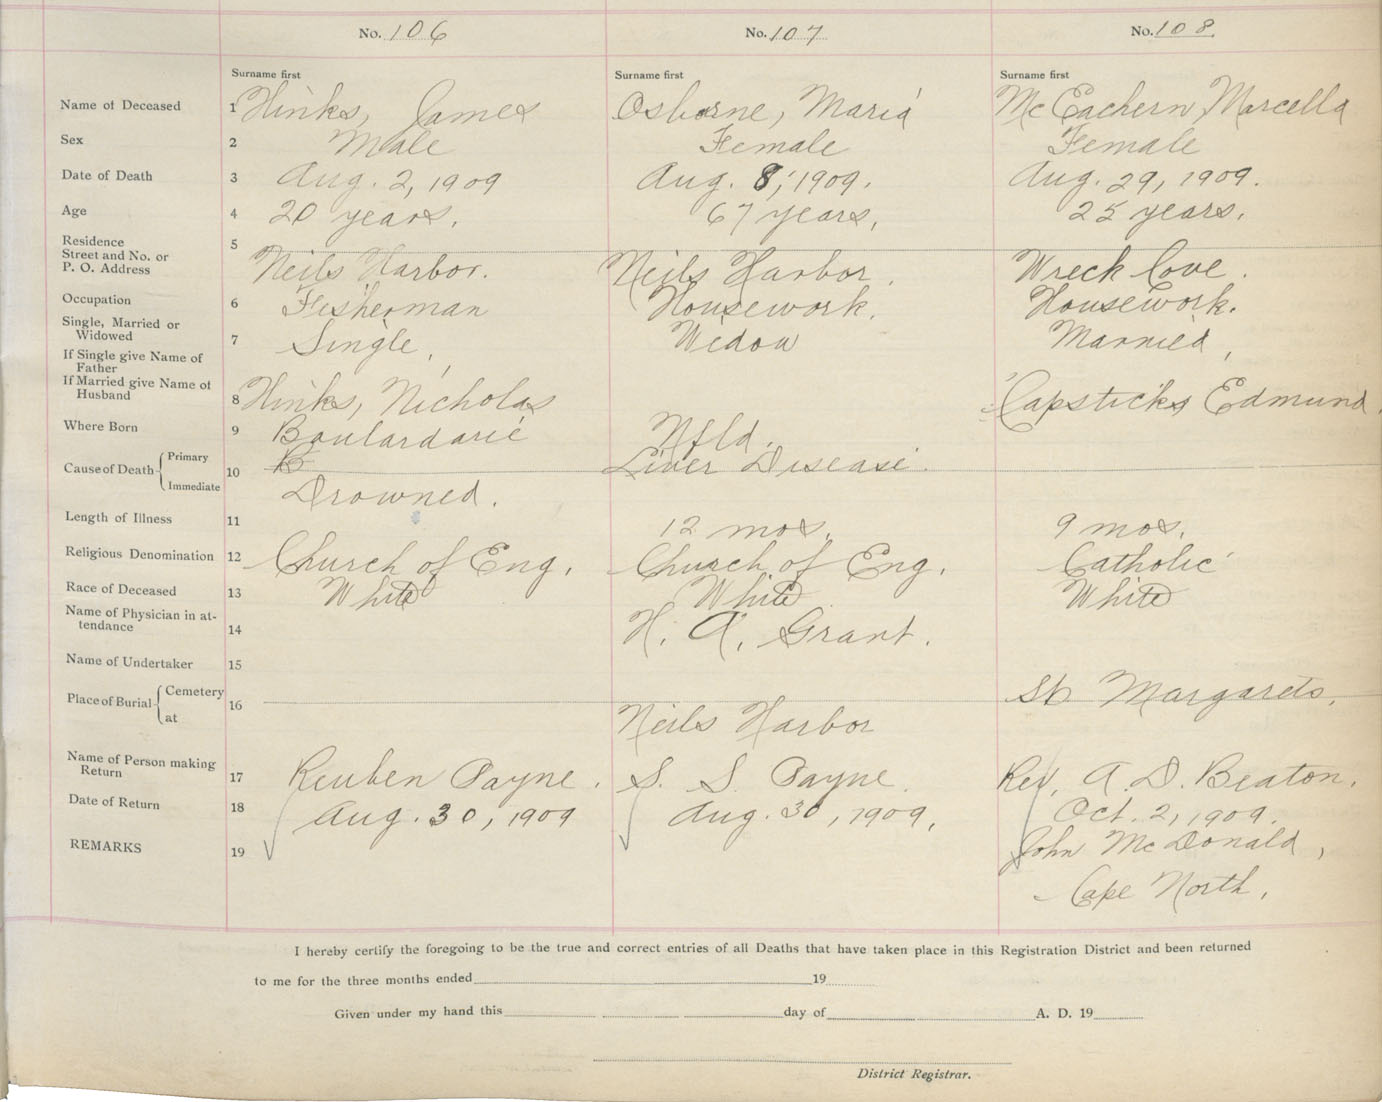 No. 106 No. 107 No. 108.
Surname first Surname first Surname first
Name of Deceased 1 Hinks, James Osborne, Maria McEachern, Marcella
Sex 2 Male Female Female
Date of Death 3 Aug. 2, 1909 Aug. 8, 1909. Aug. 29, 1909.
Age 4 20 years. 67 years, 25 years.
Residence 5
Street and No. or
P. O. Address Neils Harbor. Neils Harbor. Wreck Cove.
Occupation 6 Fisherman Housework. Housework.
Single, Married or
Widowed 7 Single, Widow Married,
If Single give Name of
Father
If Married give Name of
Husband 8 Hinks, Nicholas Capsticks Edmund.
Where Born 9 Boulardarie Nfld.
Cause of Death Primary 10 B Liver Disease.
Immediate Drowned.
Length of Illness 11 12 mos. 9 mos.
Religious Denomination 12 Church of Eng. Church of Eng. Catholic
Race of Deceased 13 White White White
Name of Physician in at-
tendance 14 H. A. Grant.
Name of Undertaker 15
Place of Burial Cemetery 16 St Margarets.
at Neils Harbor
Name of Person making
Return 17 Reuben Payne. S. S. Payne. Rev. A. D. Beaton.
Date of Return 18 Aug. 30, 1909 Aug. 30, 1909. Oct. 2, 1909.
REMARKS 19 John McDonald,
Cape North.
I hereby certify the foregoing to be the true and correct entries of all Deaths that have taken place in this Registration District and been returned
to me for the three months ended 19
Given under my hand this day of A. D. 19
District Registrar.